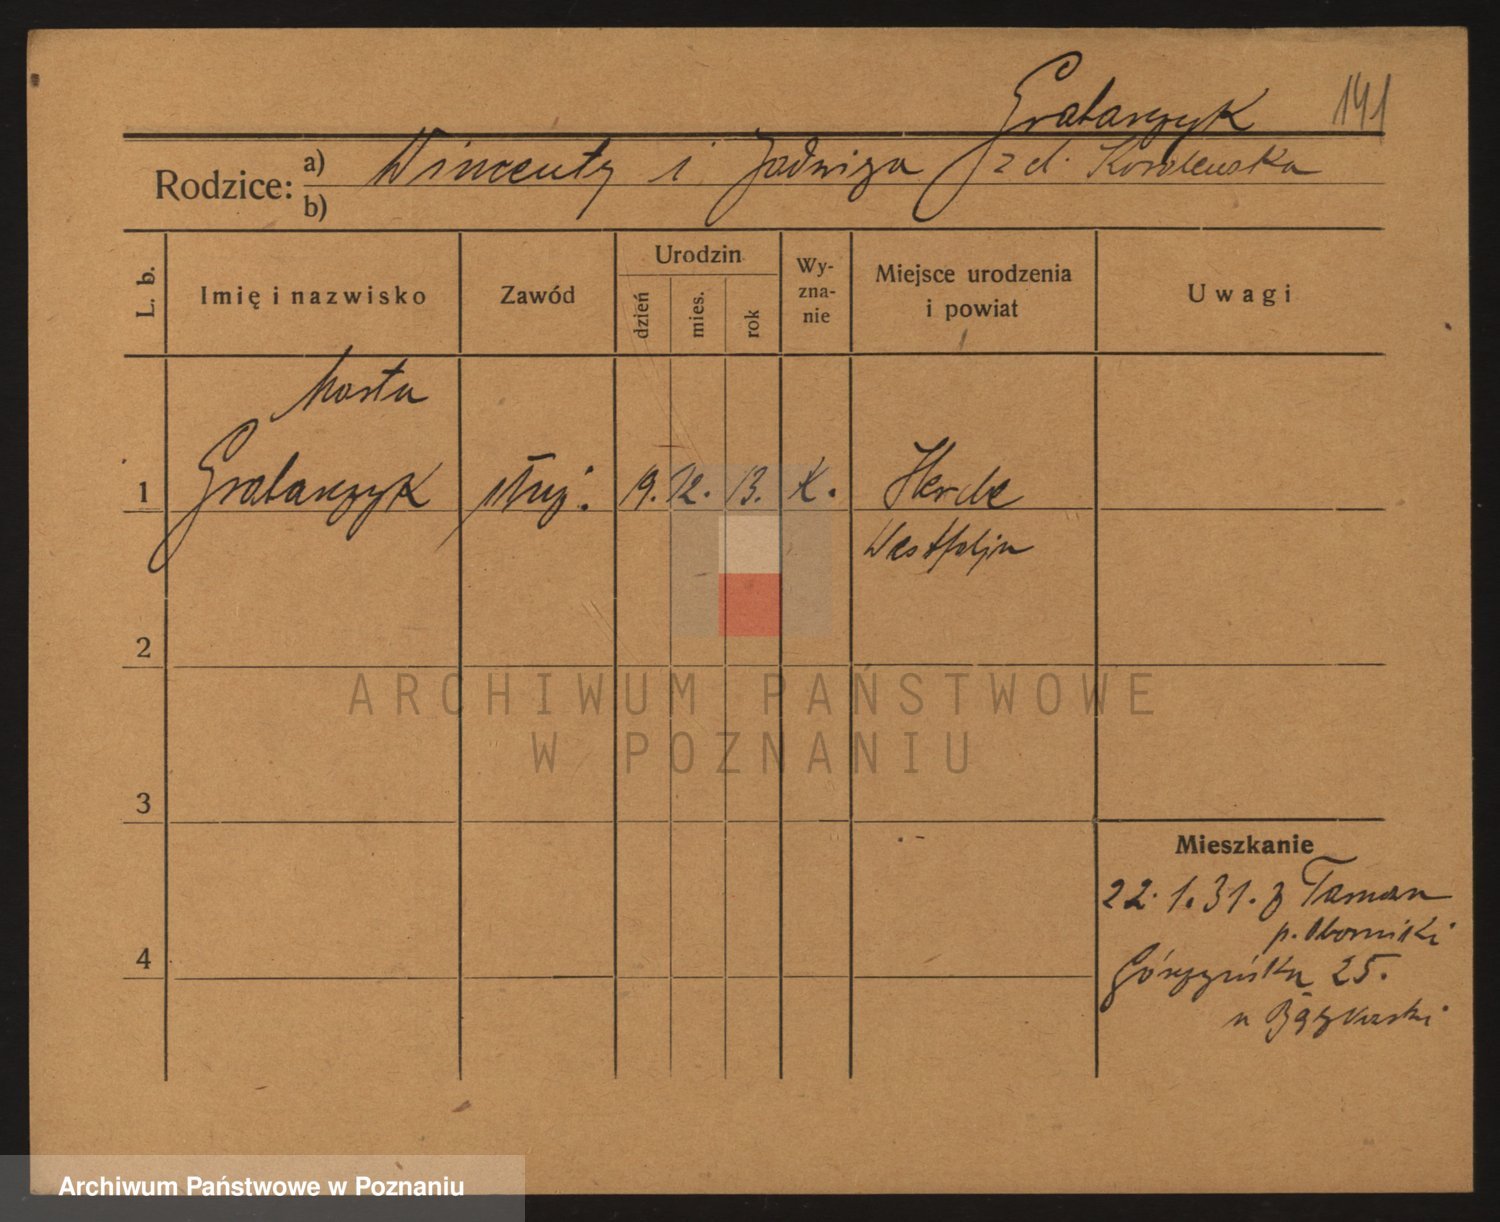 Grabarczyk 141
Rodzice: a) Wincenty i Jadwiga z d.
b)
L. b.
Imię i nazwisko
Zawód
Urodzin
dzień
mies.
rok
Wy-
zna-
nie
Miejsce urodzenia
i powiat
Uwagi
Marta
1 Grabarczyk służ. 19. 12. 13. K. Herde
Westfalja
2
3
4
Mieszkanie
22.1.31. z
p. Oborniki
Górczyńska 25.
ARCHIWUM PAŃSTWOWE
W POZNANIU
Archiwum Państwowe w Poznaniu